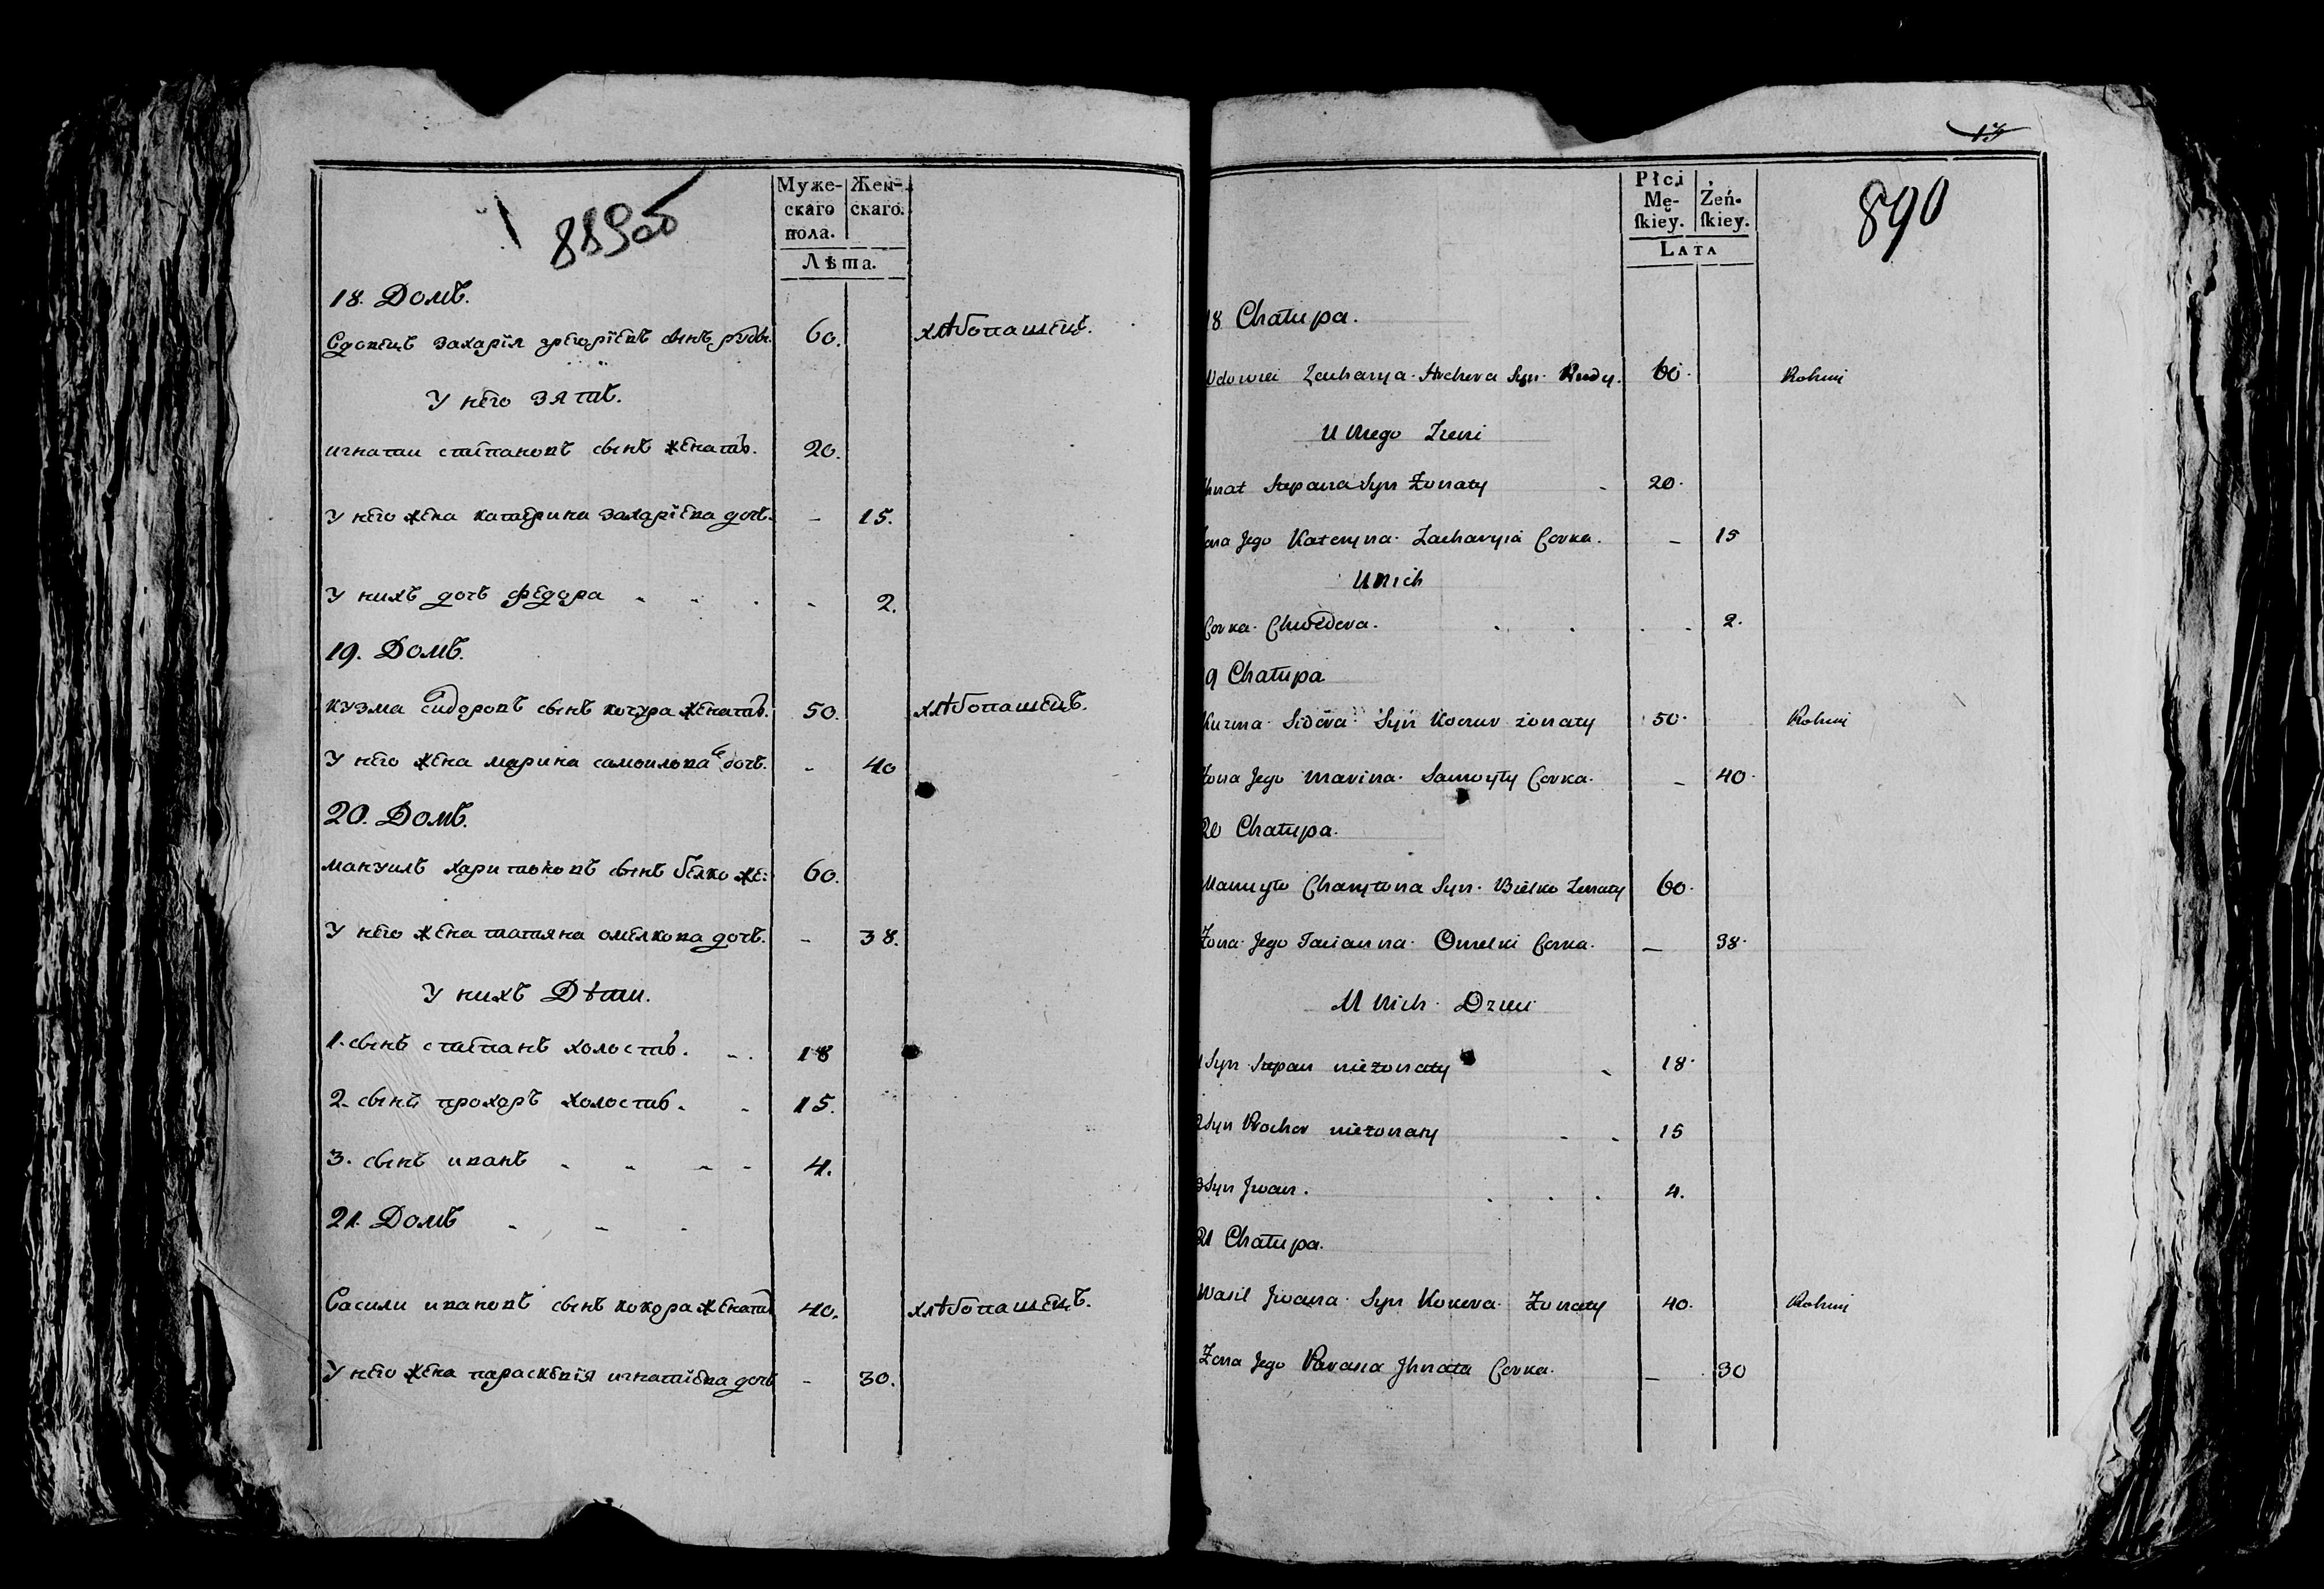 889об
Муже- Жен-
скаго скаго.
пола.
Лѣта.
18. Домъ.
вдовецъ захарїя григорїевъ сынъ руды. 60. хлѣбопашецъ.
У него зять.
игнати степановъ сынъ женатъ. 20.
У него жена катерина захарїева дочь. - 15.
У нихъ дочь федора - 2.
19. Домъ.
кузма сидоровъ сынъ кочура женатъ. 50. хлѣбопашецъ.
У него жена марина самоилова дочь. - 40
20. Домъ.
мануилъ харитоновъ сынъ белко же: 60.
У него жена татяна омелкова дочь. - 38.
У нихъ Дѣти.
1. сынъ степанъ холостъ. 18
2. сынъ прохоръ холостъ. 15.
3. сынъ иванъ 4.
21. Домъ
васили ивановъ сынъ кокора женатъ 40. хлѣбопашецъ.
У него жена параскевїя игнатиева дочь - 30.
13
890
Płci
Mę- Żeń-
ſkiey. ſkiey.
LATA
18 Chałupa.
Wdowiec Zacharya Syn Rudy. 60. Rolnik
U niego Zienc
Ihnat Stepana Syn Żonaty 20.
Żona Jego Kateryna Zacharyia Corka. - 15
U nich
Corka Chwedora. 2.
19 Chałupa
Kuzma Sidora Syn Koczur żonaty 50. Rolnik
Żona Jego Marina Samoyły Corka. - 40.
20 Chałupa.
Manuyło Charytona Syn Bielko Żonaty 60.
Żona Jego Tacianna Omelki Corka. - 38.
U Nich Dzieci
1 Syn Stepan nieżonaty 18.
2 Syn Prochor nieżonaty 15
3 Syn Jwan. 4.
21 Chałupa.
Wasil Jwana Syn Kokora Żonaty 40. Rolnik
Żona Jego Ihnata Corka. - 30